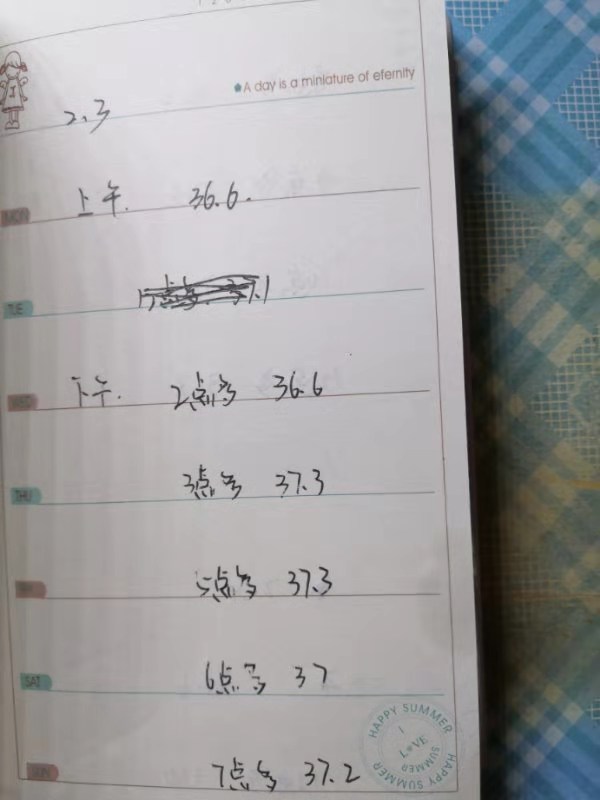 A day is a miniature of efernity
2、3
上午. 36.6.
MON
37.1
TUE
下午. 2点多 36.6
3点多 37.3
THU
5点多 37.3
6点多 37
SAT
7点多 37.2
SUN
HAPPY SUMMER
I LOVE SUMMER
HAPPY SUMMER